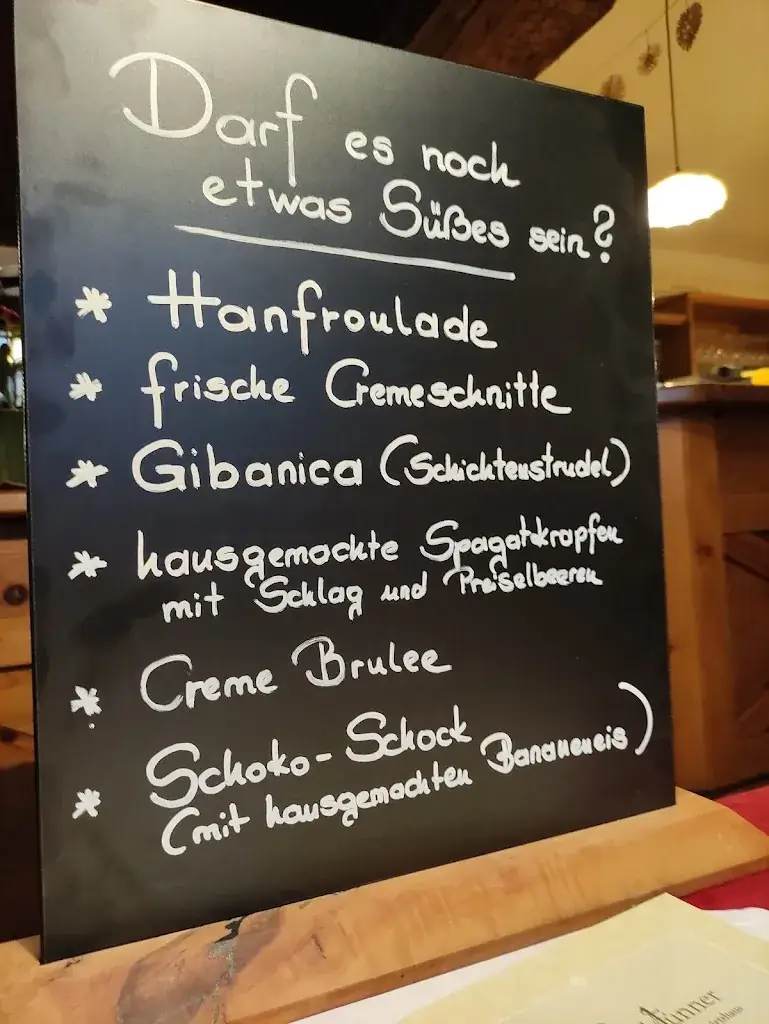 Darf es noch
etwas Süßes sein?
* Hanfroulade
* frische Cremeschnitte
* Gibanica (Schichtenstrudel)
* hausgemachte Spagatkrapfen
mit Schlag und Preiselbeeren
* Creme Brulee
* Schoko-Schock
(mit hausgemachten Bananeneis)